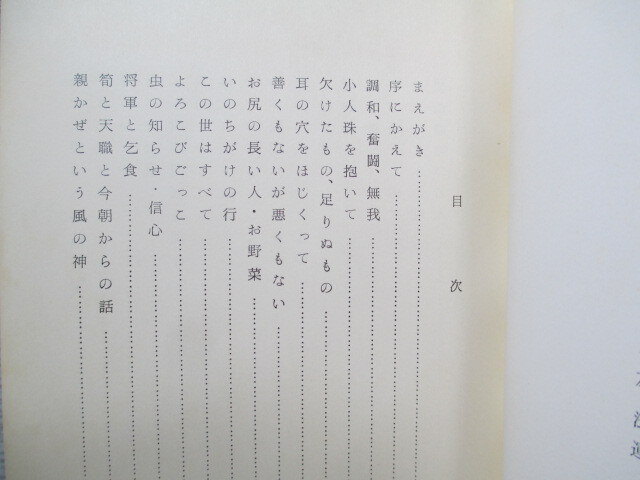 目次
まえがき
序にかえて
調和、奮闘、無我
小人珠を抱いて
欠けたもの、足りぬもの
耳の穴をほじくって
善くもないが悪くもない
お尻の長い人・お野菜
いのちがけの行
この世はすべて
よろこびごっこ
虫の知らせ・信心
将軍と乞食
筍と天職と今朝からの話
親かぜという風の神